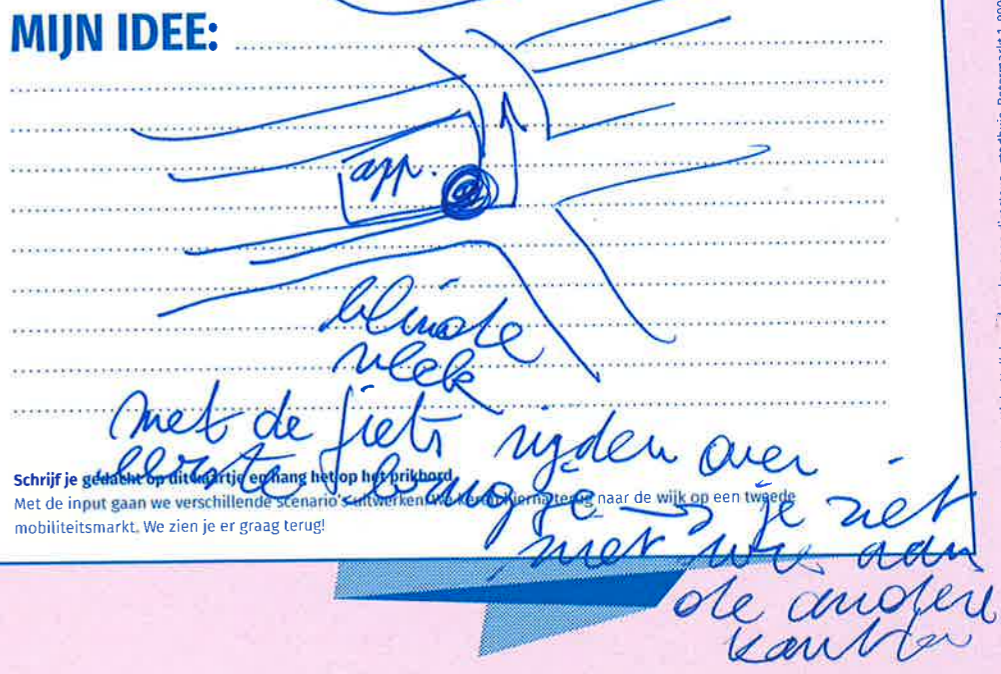 MIJN IDEE:
app.
blinde
vlek
met de fiets rijden over
eerste brugje → je ziet
niet wie aan
de andere
kant
Schrijf je gedacht op dit kaartje en hang het op het prikbord.
Met de input gaan we verschillende scenario's uitwerken. We keren hierna terug naar de wijk op een tweede
mobiliteitsmarkt. We zien je er graag terug!